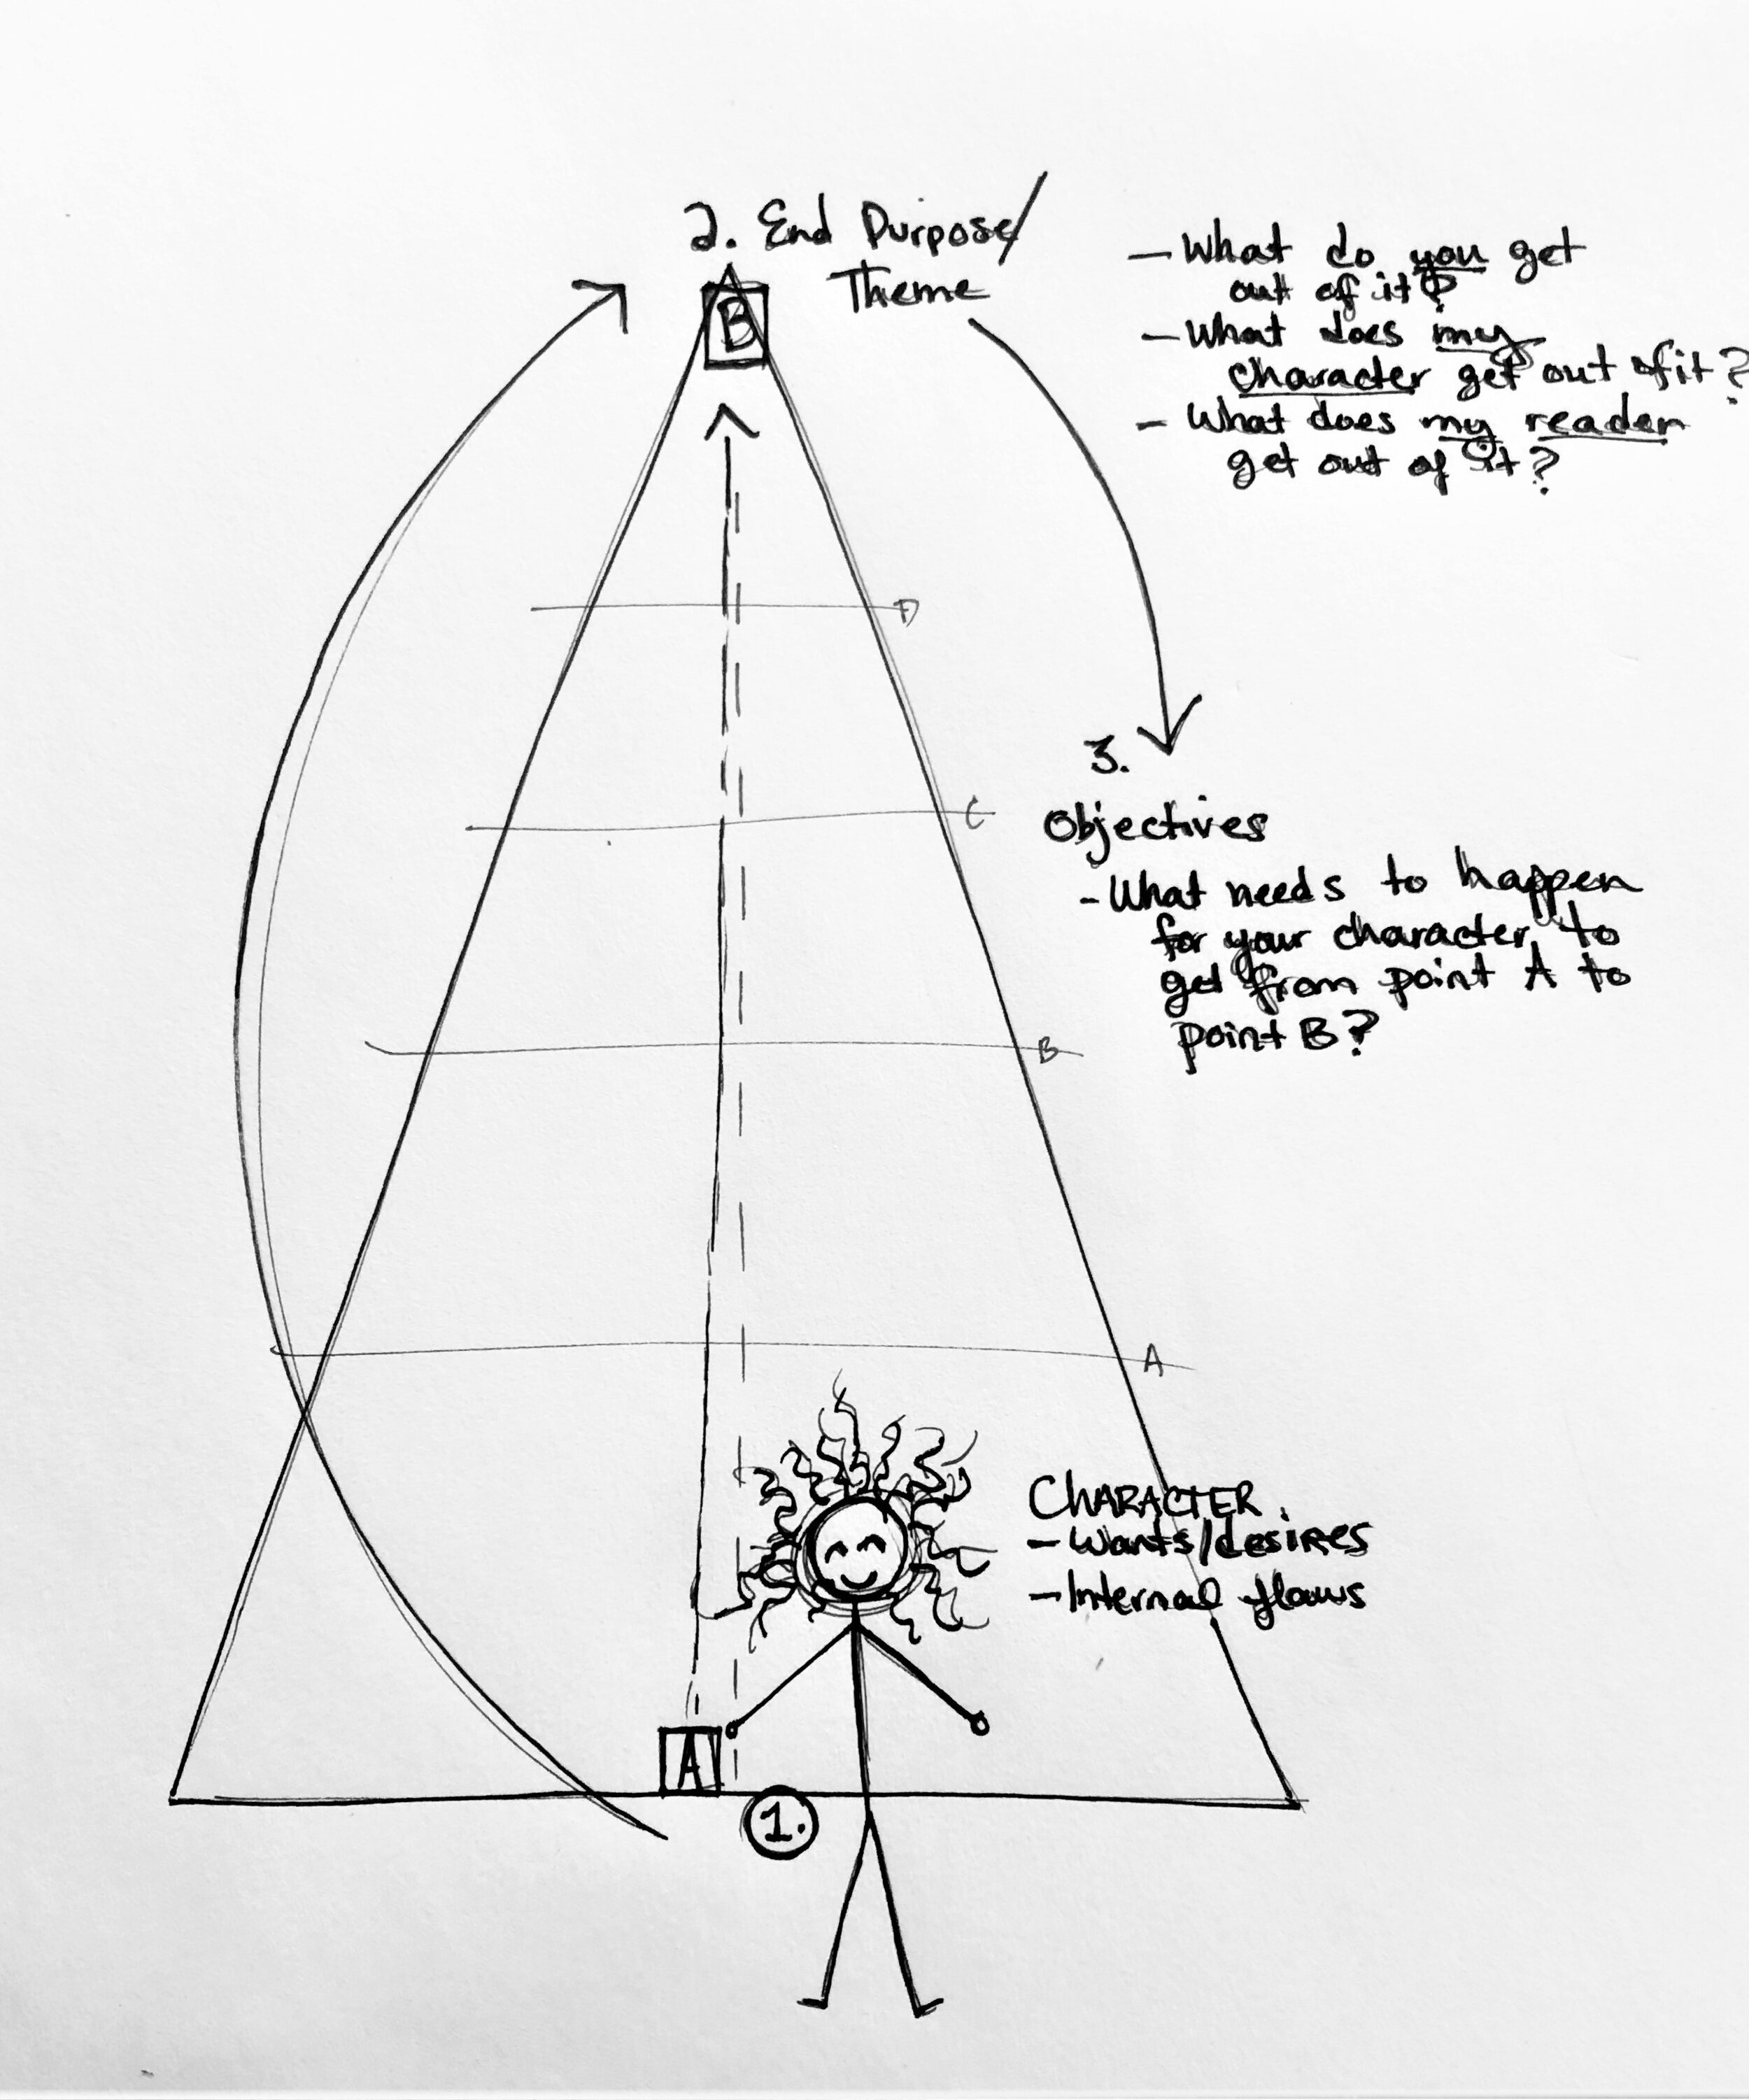 2. End Purpose/
Theme
B
- What do you get
out of it?
- What does my
character get out of it?
- What does my reader
get out of it?
D
3.
C
Objectives
- What needs to happen
for your character to
get from point A to
point B?
B
A
CHARACTER.
- Wants/desires
- Internal flaws
A
1.